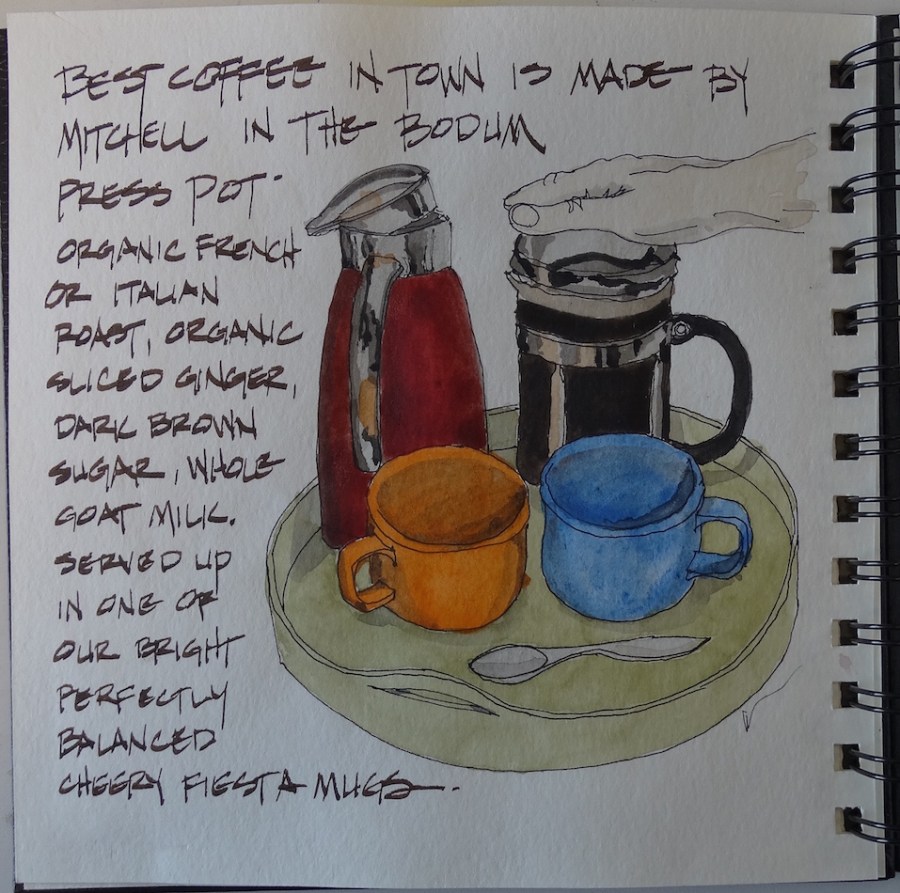 BEST COFFEE IN TOWN IS MADE BY
MITCHELL IN THE BODUM
PRESS POT.
ORGANIC FRENCH
OR ITALIAN
ROAST, ORGANIC
SLICED GINGER,
DARK BROWN
SUGAR, WHOLE
GOAT MILK.
SERVED UP
IN ONE OF
OUR BRIGHT
PERFECTLY
BALANCED
CHEERY FIESTA MUGS.